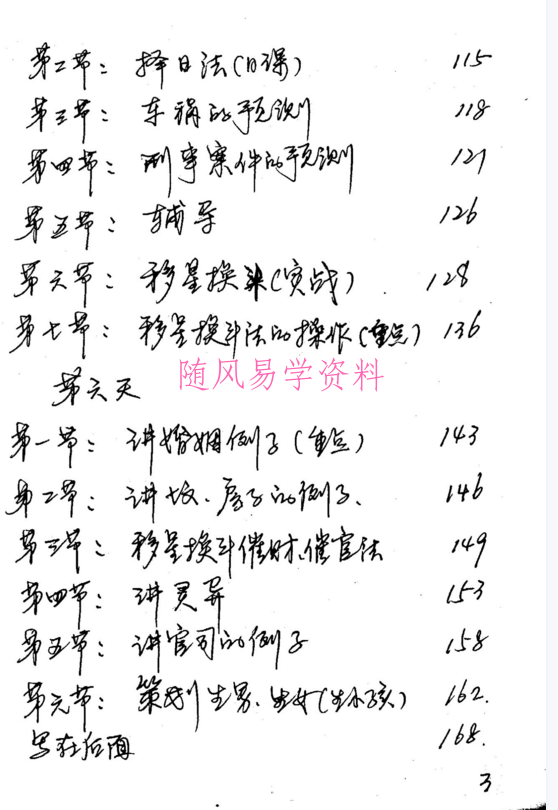 第二节：择日法（日课） 115
第三节：车祸的预测 118
第四节：刑事案件的预测 121
第五节：辅导 126
第六节：移星换斗（实战） 128
第七节：移星换斗法的操作（重点） 136
随风易学资料
第六天
第一节：讲婚姻例子（重点） 143
第二节：讲坟、房子的例子、 146
第三节：移星换斗催财、催官法 149
第四节：讲灵异 153
第五节：讲官司的例子 158
第六节：策划生男、生女（生小孩） 162.
写在后面 168.
3